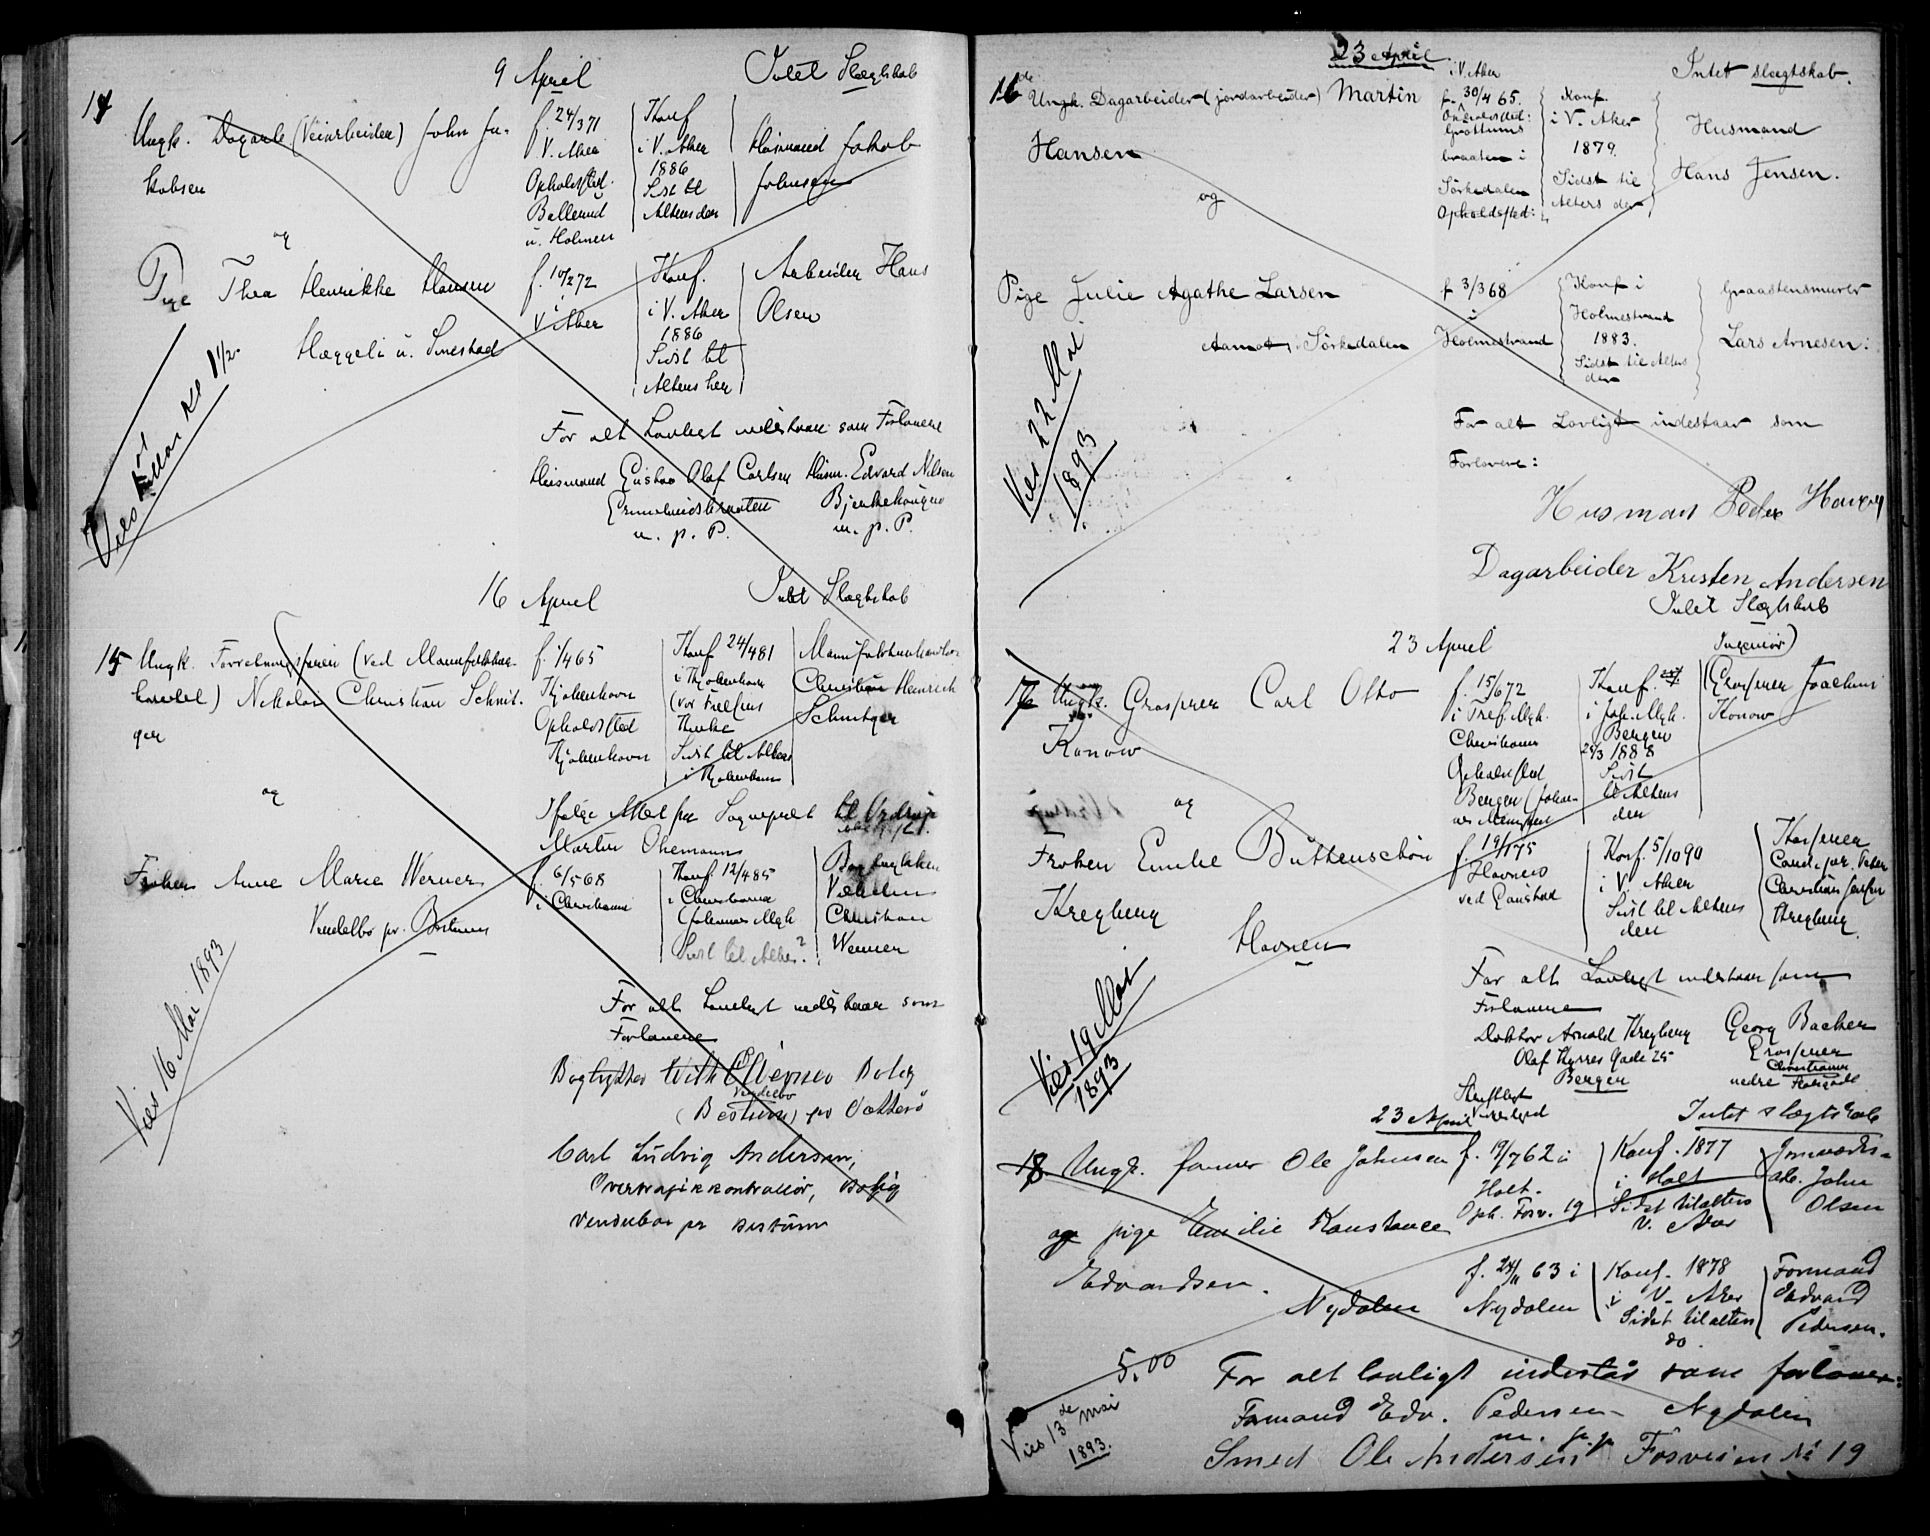 9 April Intet Slægtskab
14 Ungk. Dagarb (Veiarbeider) John Ja-
kobsen
f. 24/3 71
V. Aker
Opholdssted.
Ballerud
u. Holmen
Konf
i V. Aker
1886
Sidst til
Alters der
Husmand Jakob
Johnsen
og
Pige Thea Henrikke Hansen
Hæggeli u. Smestad
f. 10/2 72
i
V. Aker
Konf.
i V. Aker
1886
Sidst til
Alters her
Arbeider Hans
Olsen
Vies Kl 1 1/2
For alt Lovligt indestaar som Forlovere
Husmand Gustav Olaf Carlsen Husm. Edvard Nilsen
m. p. P. m. p. P.
16 April Intet Slægtskab
15 Ungk. (ved Manufaktur-
handel) Nikolai Christian Schnit-
ger
f. 1/4 65
Kjøbenhavn
Opholdssted
Kjøbenhavn
Konf 24/4 81
i Kjøbenhavn
(Vor Frelsers
Kirke
Sidst til Alters
i Kjøbenhavn
Manufakturhandler
Christian Heinrich
Schnitger
og
Ifølge Attest fra Sognepræst til Ordrup
Martin Ohemann
Frøken Anne Marie Werner
Vendelbo pr. Bestum
f. 6/5 68
i Christiania
Konf. 12/4 85
i Christiania
(Johannes Mgh
Sidst til Alters?
Bogtrykker
Vilhelm
Christian
Werner
Vies 16 Mai 1893
For alt Lovligt indestaar som
Forlovere
Bogtrykker Wilh Werner Bolig
Vendelbo
(Bestum) pr Vækkerø
Carl Ludvig Andersen,
Overtrafikkontrollør, Bolig
Vendelbo pr Bestum
23 April Intet slægtskab.
16 Ungk. Dagarbeider (jordarbeider) Martin
Hansen
i V. Aker
f. 30/4 65.
Opholdssted:
Grøttums
braaten i
Sørkedalen
Opholdssted:
Konf.
i V. Aker
1879.
Sidst til
Alters der
Husmand
Hans Jensen.
og
Pige Julie Agathe Larsen
Aamot, Sørkedalen
f 3/3 68
i
Holmestrand
Konf i
Holmestrand
1883.
Sidst til Alters
der
Graastensmurer
Lars Arnesen.
Vies 22 Mai
1893
For alt Lovligt indestaar som
Forlovere:
Husman Peder
Dagarbeider Kristen Andersen
Intet Slægtskab
23 April
17 Ungk. Grosserer Carl Otto
Konow
f. 15/6 72
i Tref. Mgh.
Christiania
Opholdssted
Bergen (Johan-
nes Menighed
Konf.
i Joh. Mgh.
Bergen
25/3 1888
Sidst
til Alters
der
Ingeniør)
(Grosserer Joachim
Konow
og
Frøken Emilie Büttenschøn
Kregberg
Havnen
f. 19/1 75
Havnens
ved Gaustad
Konf. 5/10 90
i V. Aker
Sidst til Alters
der
Grosserer
Christian
Kregberg.
Vies 19 Mai
1893
For alt Lovligt indestaar som
Forlovere
Doktor Arnold Kregberg
Olaf Kyrres Gade 25
Bergen
Georg Backer
Grosserer
Christiania
nedre
Skriftligt
23 April Intet slægtskab
18 Ungk. former Ole Johnsen
f. 19/7 62 i
Holt.
Oph. Fosv. 19
Konf. 1877
i Holt
Sidst til alters
V. Aker
Jernværks-
arb. John
Olsen
og pige Emilie Konstance
Edvardsen.
Nydalen
f. 24/11 63 i
Nydalen
Konf. 1878
i V. Aker
Sidst til alters
do
Formand
Edvard
Pedersen.
5.00
Vies 13de mai
1893.
For alt lovligt indestår som forlover:
Formand Edv. Pedersen Nydalen
m. p. p
Smed Ole Andersen Fosveien No 19